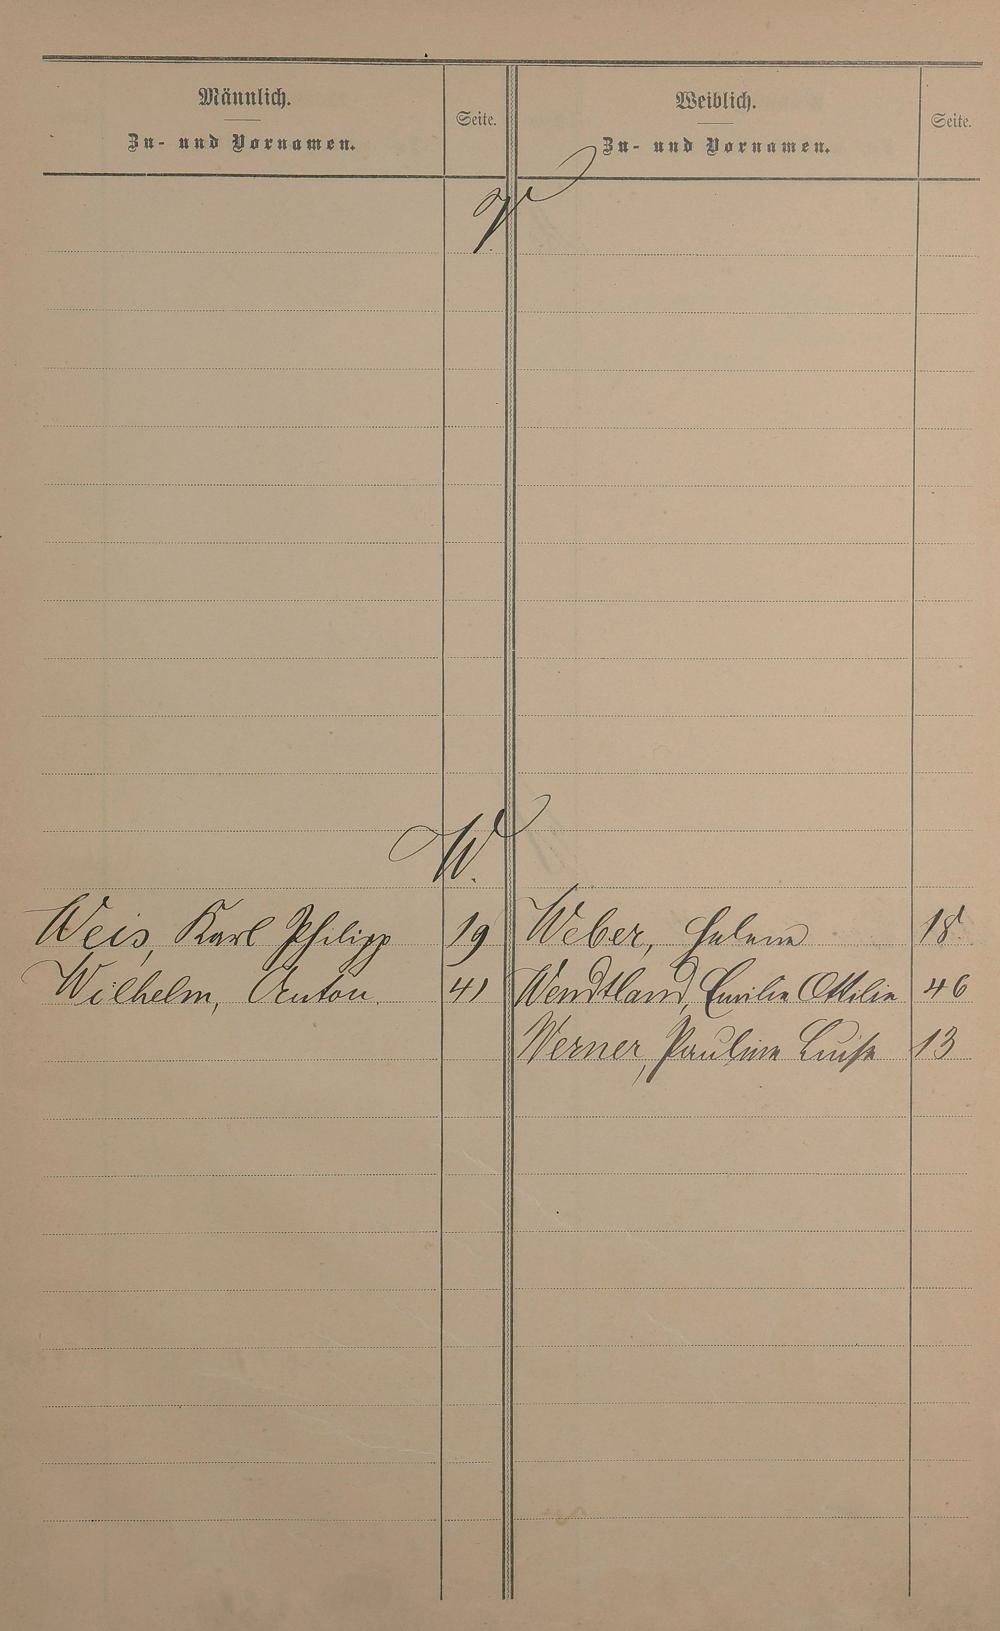 Männlich.
Zu- und Vornamen.
Seite.
Weiblich.
Zu- und Vornamen.
Seite.
V.
W.
Weis, Karl Philipp 19 Weber, Helene 18.
Wilhelm, Anton. 41 Wendtland, Emilie Ottilie 46
Werner, Pauline Luise 13